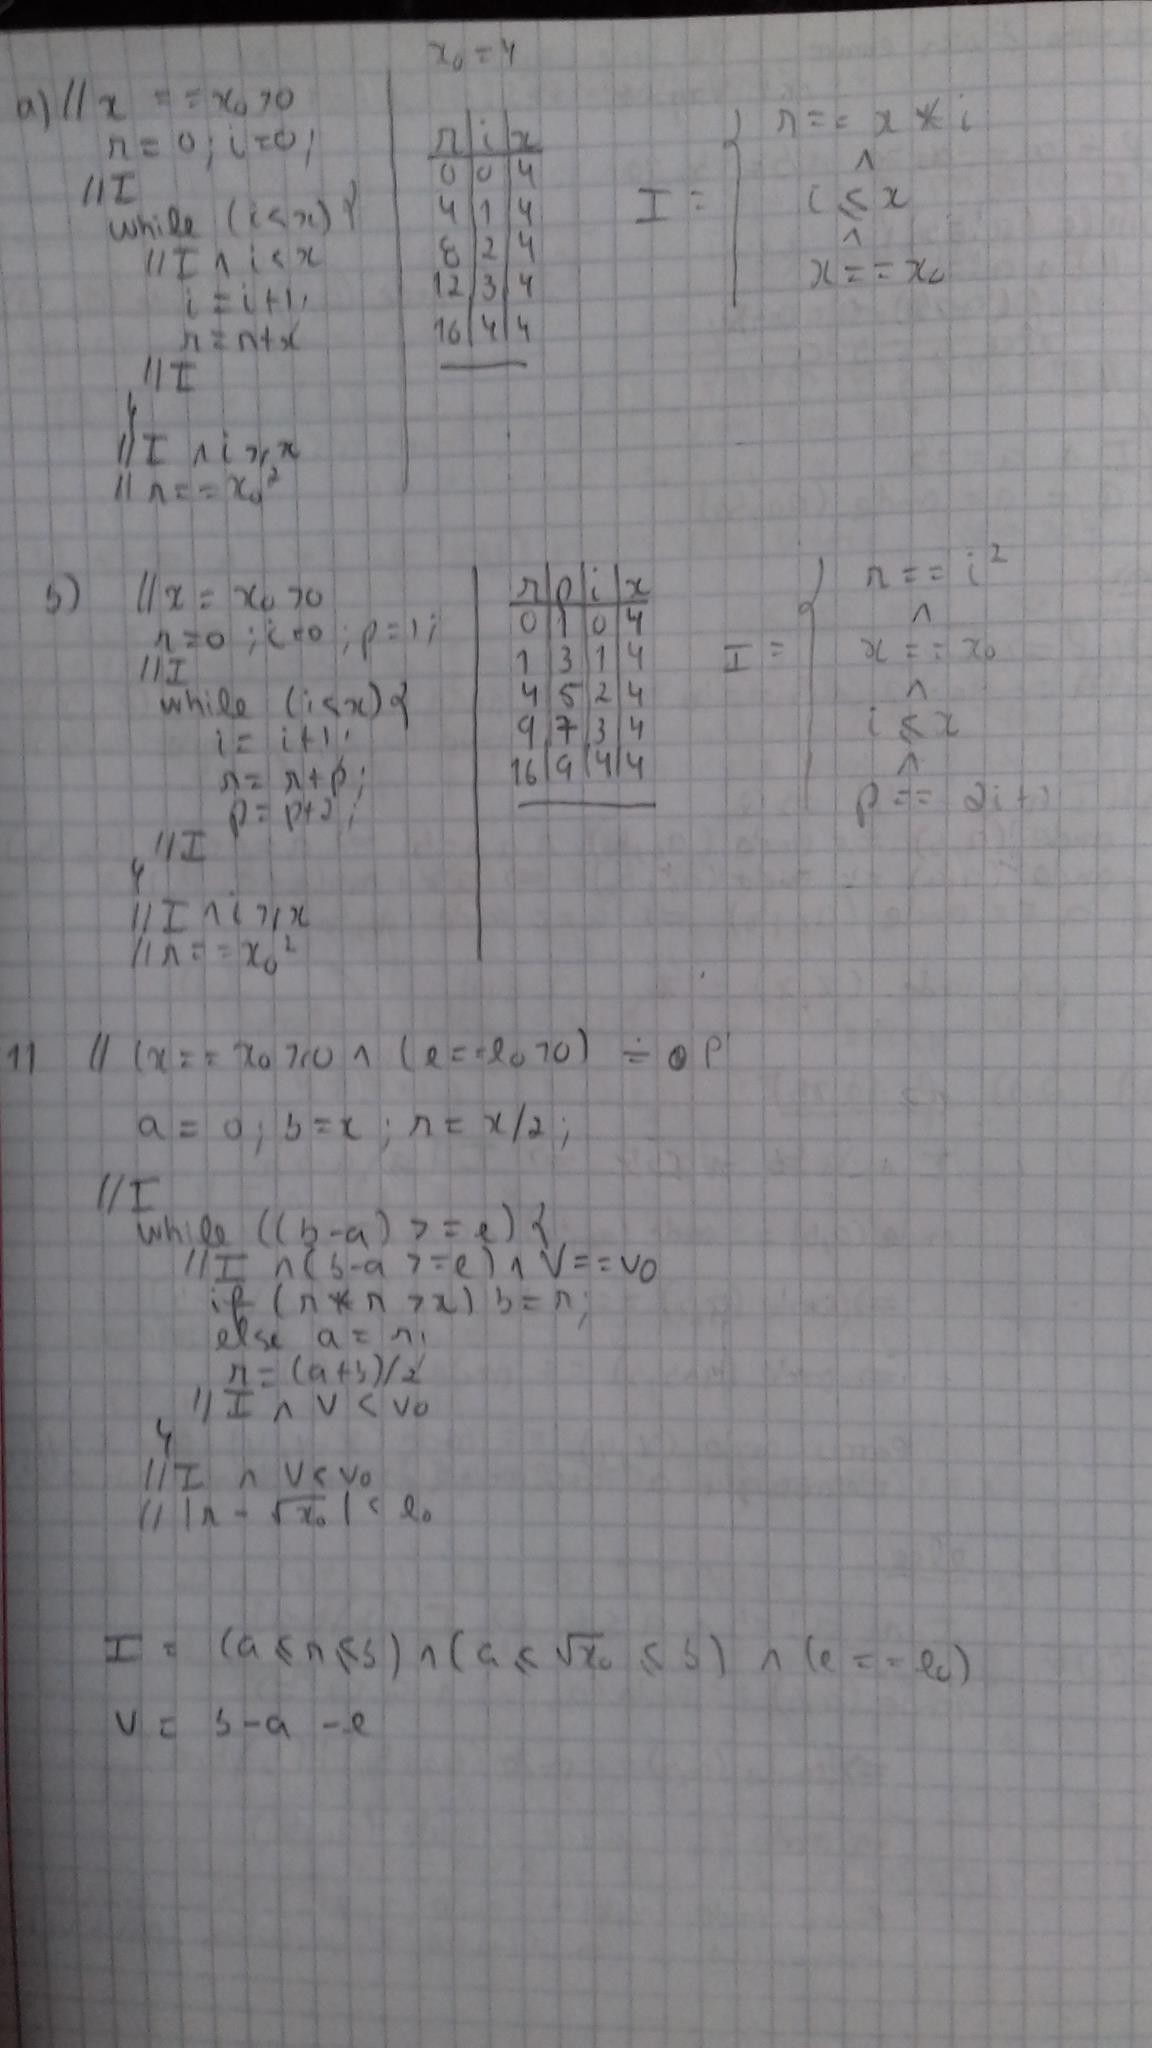 x₀ = 4
a) // x == x₀ > 0
r = 0; i = 0;
// I
while (i < x) {
// I ∧ i < x
i = i + 1;
r = r + x
// I
}
// I ∧ i ⩾ x
// r == x₀²
r | i | x
0 | 0 | 4
4 | 1 | 4
8 | 2 | 4
12 | 3 | 4
16 | 4 | 4
r == x * i
∧
I = { i ⩽ x
∧
x == x₀
b) // x = x₀ > 0
r = 0; i = 0; p = 1;
// I
while (i < x) {
i = i + 1;
r = r + p;
p = p + 2;
// I
}
// I ∧ i ⩾ x
// r == x₀²
r | p | i | x
0 | 1 | 0 | 4
1 | 3 | 1 | 4
4 | 5 | 2 | 4
9 | 7 | 3 | 4
16 | 9 | 4 | 4
r == i²
∧
I = { x == x₀
∧
i ⩽ x
∧
p == 2i + 1
11 // (x == x₀ ⩾ 0 ∧ (e == e₀ > 0) ÷ P
a = 0; b = x; r = x/2;
// I
while ((b - a) >= e) {
// I ∧ (b - a >= e) ∧ V == v₀
if (r * r > x) b = r;
else a = r;
r = (a + b)/2
// I ∧ V < v₀
}
// I ∧ V < v₀
// |r - √x₀| < e₀
I = (a ⩽ r ⩽ b) ∧ (a ⩽ √x₀ ⩽ b) ∧ (e == e₀)
V = b - a - e